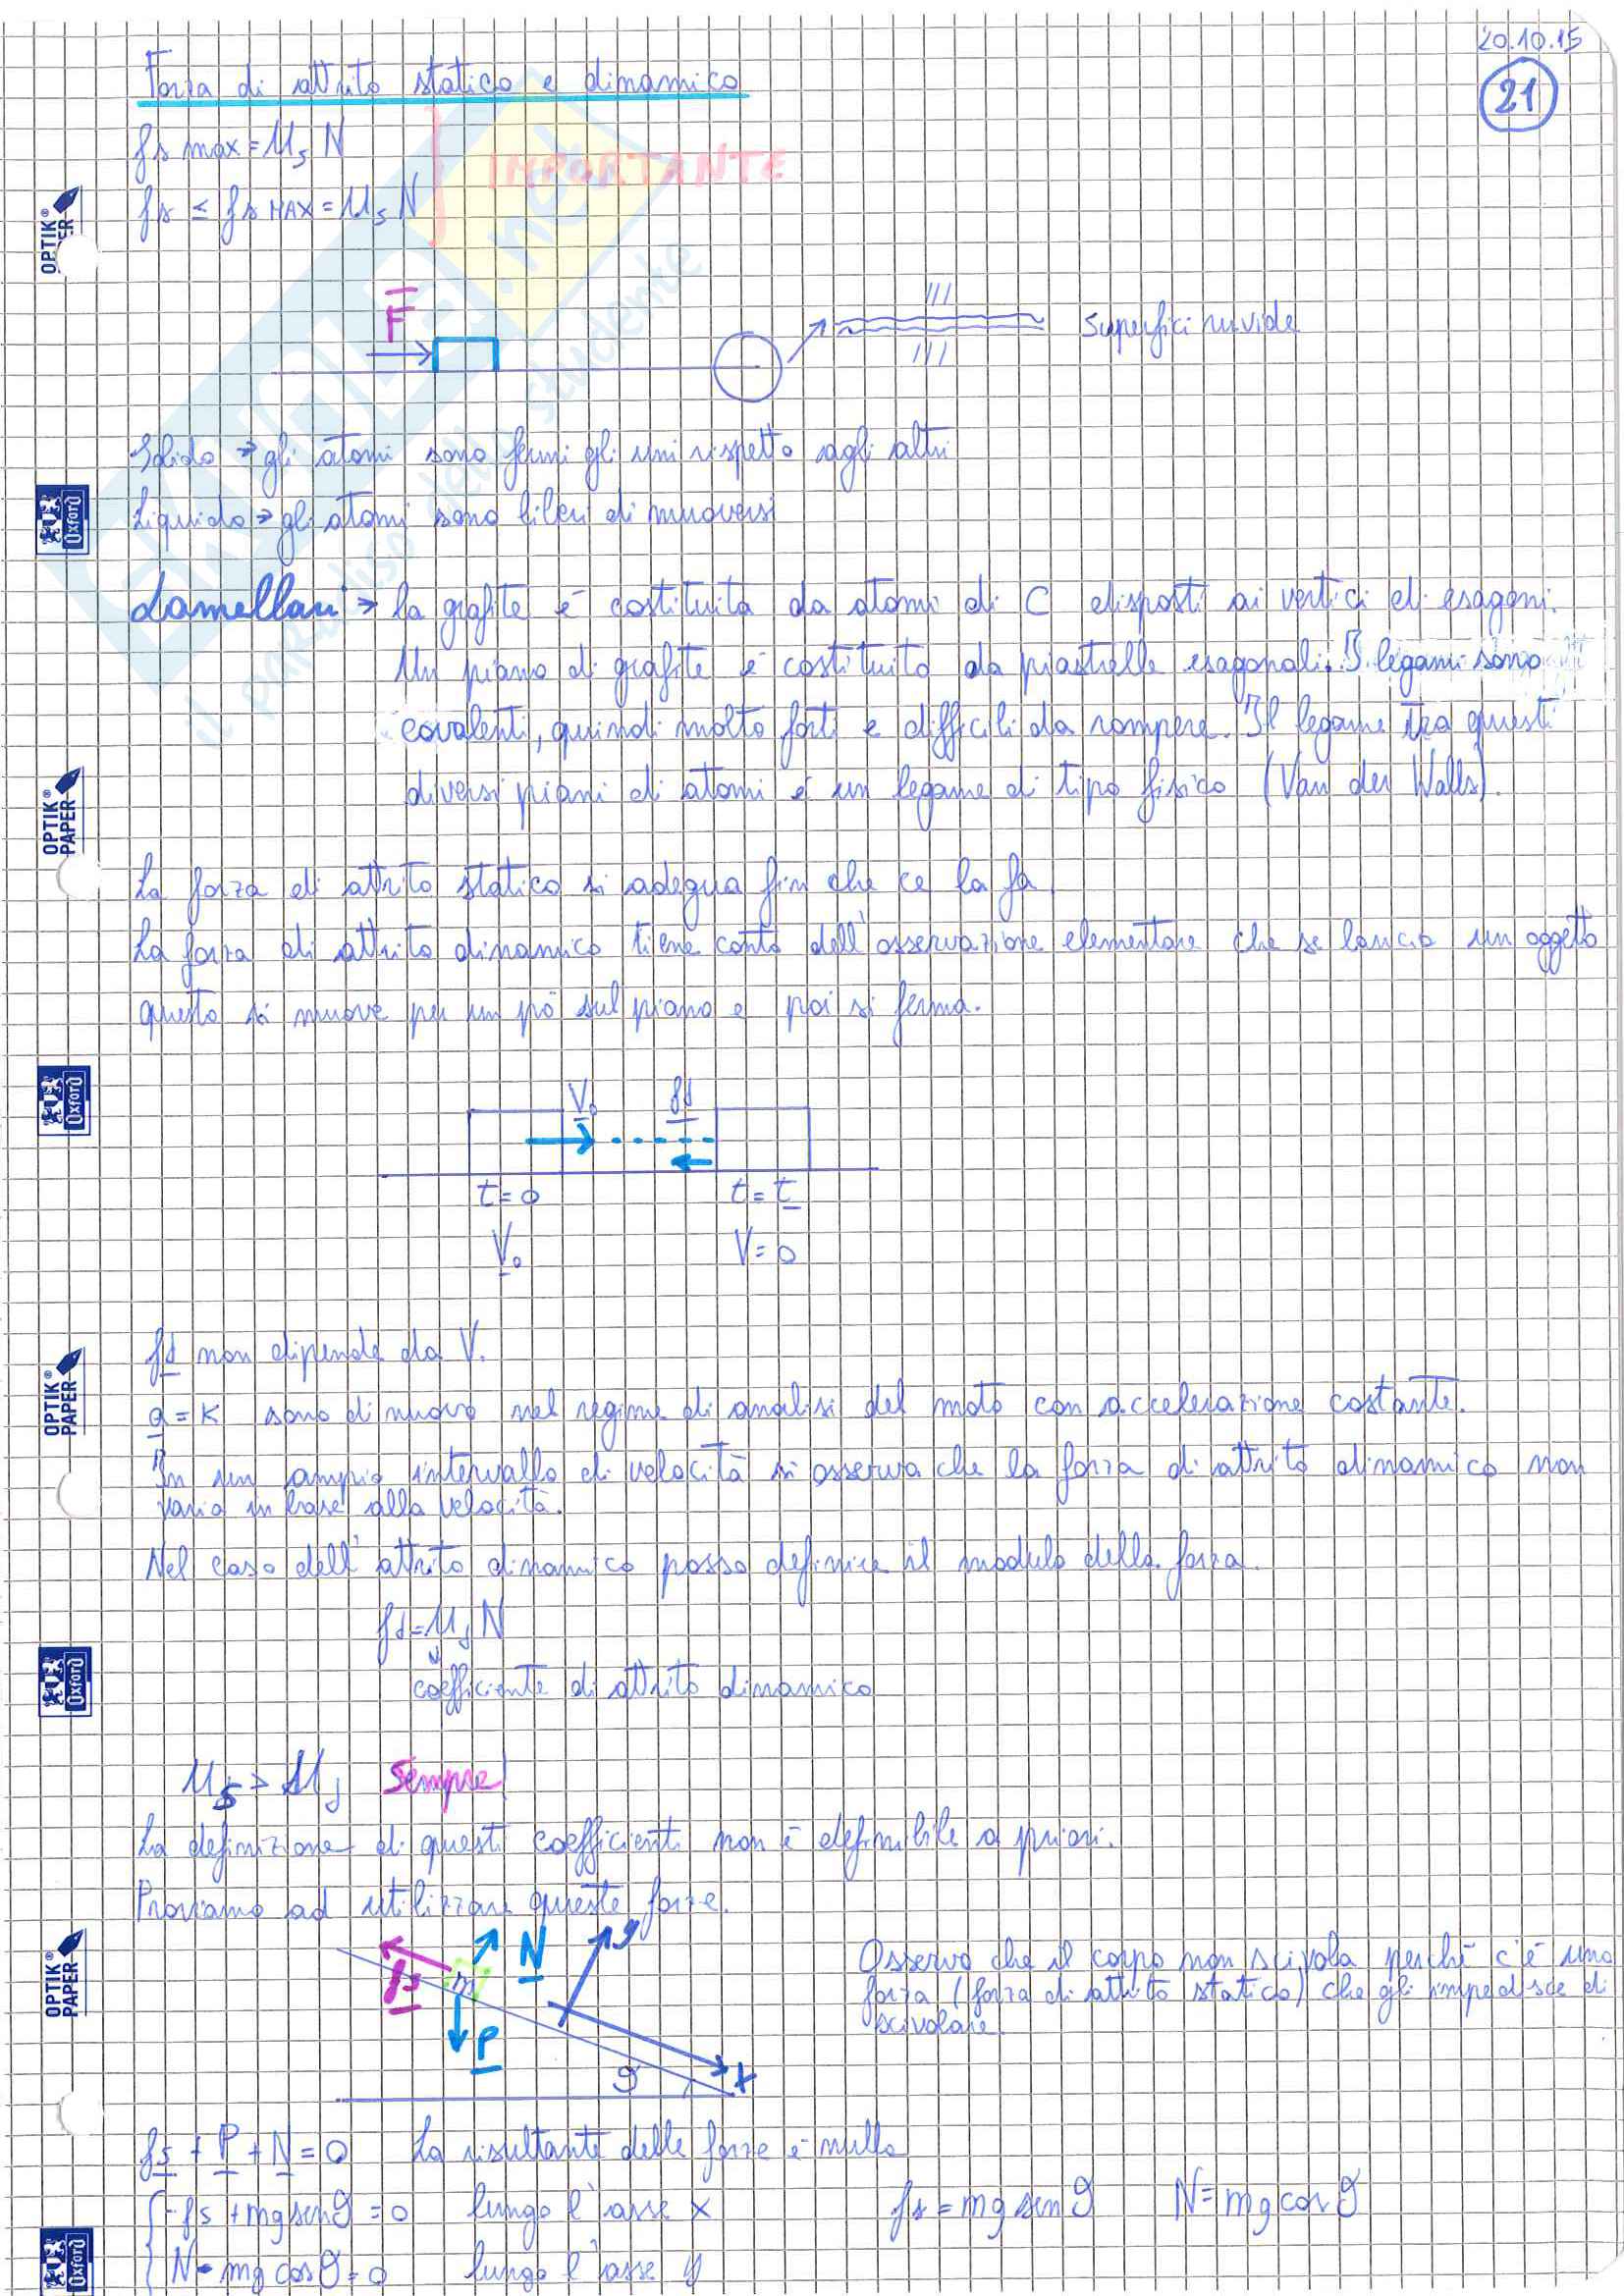 20.10.15
21
Forza di attrito statico e dinamico
fs max = μs N
fs ≤ fs MAX = μs N
IMPORTANTE
F
superfici ruvide
Solido → gli atomi sono fermi gli uni rispetto agli altri
Liquido → gli atomi sono liberi di muoversi
Lamellari → la grafite è costituita da atomi di C disposti ai vertici di esagoni.
Un piano di grafite è costituito da piastrelle esagonali. I legami sono
covalenti, quindi molto forti e difficili da rompere. Il legame tra questi
diversi piani di atomi è un legame di tipo fisico (Van der Walls).
La forza di attrito statico si adegua fin che ce la fa.
La forza di attrito dinamico tiene conto dell'osservazione elementare che se lancio un oggetto
questo si muove per un pò sul piano e poi si ferma.
V₀ fd
t=0 t=t
V₀ V=0
fd non dipende da V.
a = K sono di nuovo nel regime di analisi del moto con accelerazione costante.
In un ampio intervallo di velocità si osserva che la forza di attrito dinamico non
varia in base alla velocità.
Nel caso dell'attrito dinamico posso definire il modulo della forza.
fd = μd N
coefficiente di attrito dinamico
μs > μd Sempre!
La definizione di questi coefficienti non è definibile a priori.
Proviamo ad utilizzare queste forze.
fs m N y
P
ϑ x
Osservo che il corpo non scivola perchè c'è una
forza (forza di attrito statico) che gli impedisce di
scivolare.
fs + P + N = 0 La risultante delle forze è nulla
-fs + mg senϑ = 0 lungo l'asse x fs = mg senϑ N = mg cosϑ
N - mg cosϑ = 0 lungo l'asse y
OPTIK® PAPER
Oxford
OPTIK® PAPER
Oxford
OPTIK® PAPER
Oxford
OPTIK® PAPER
Oxford
il paradiso dello studente